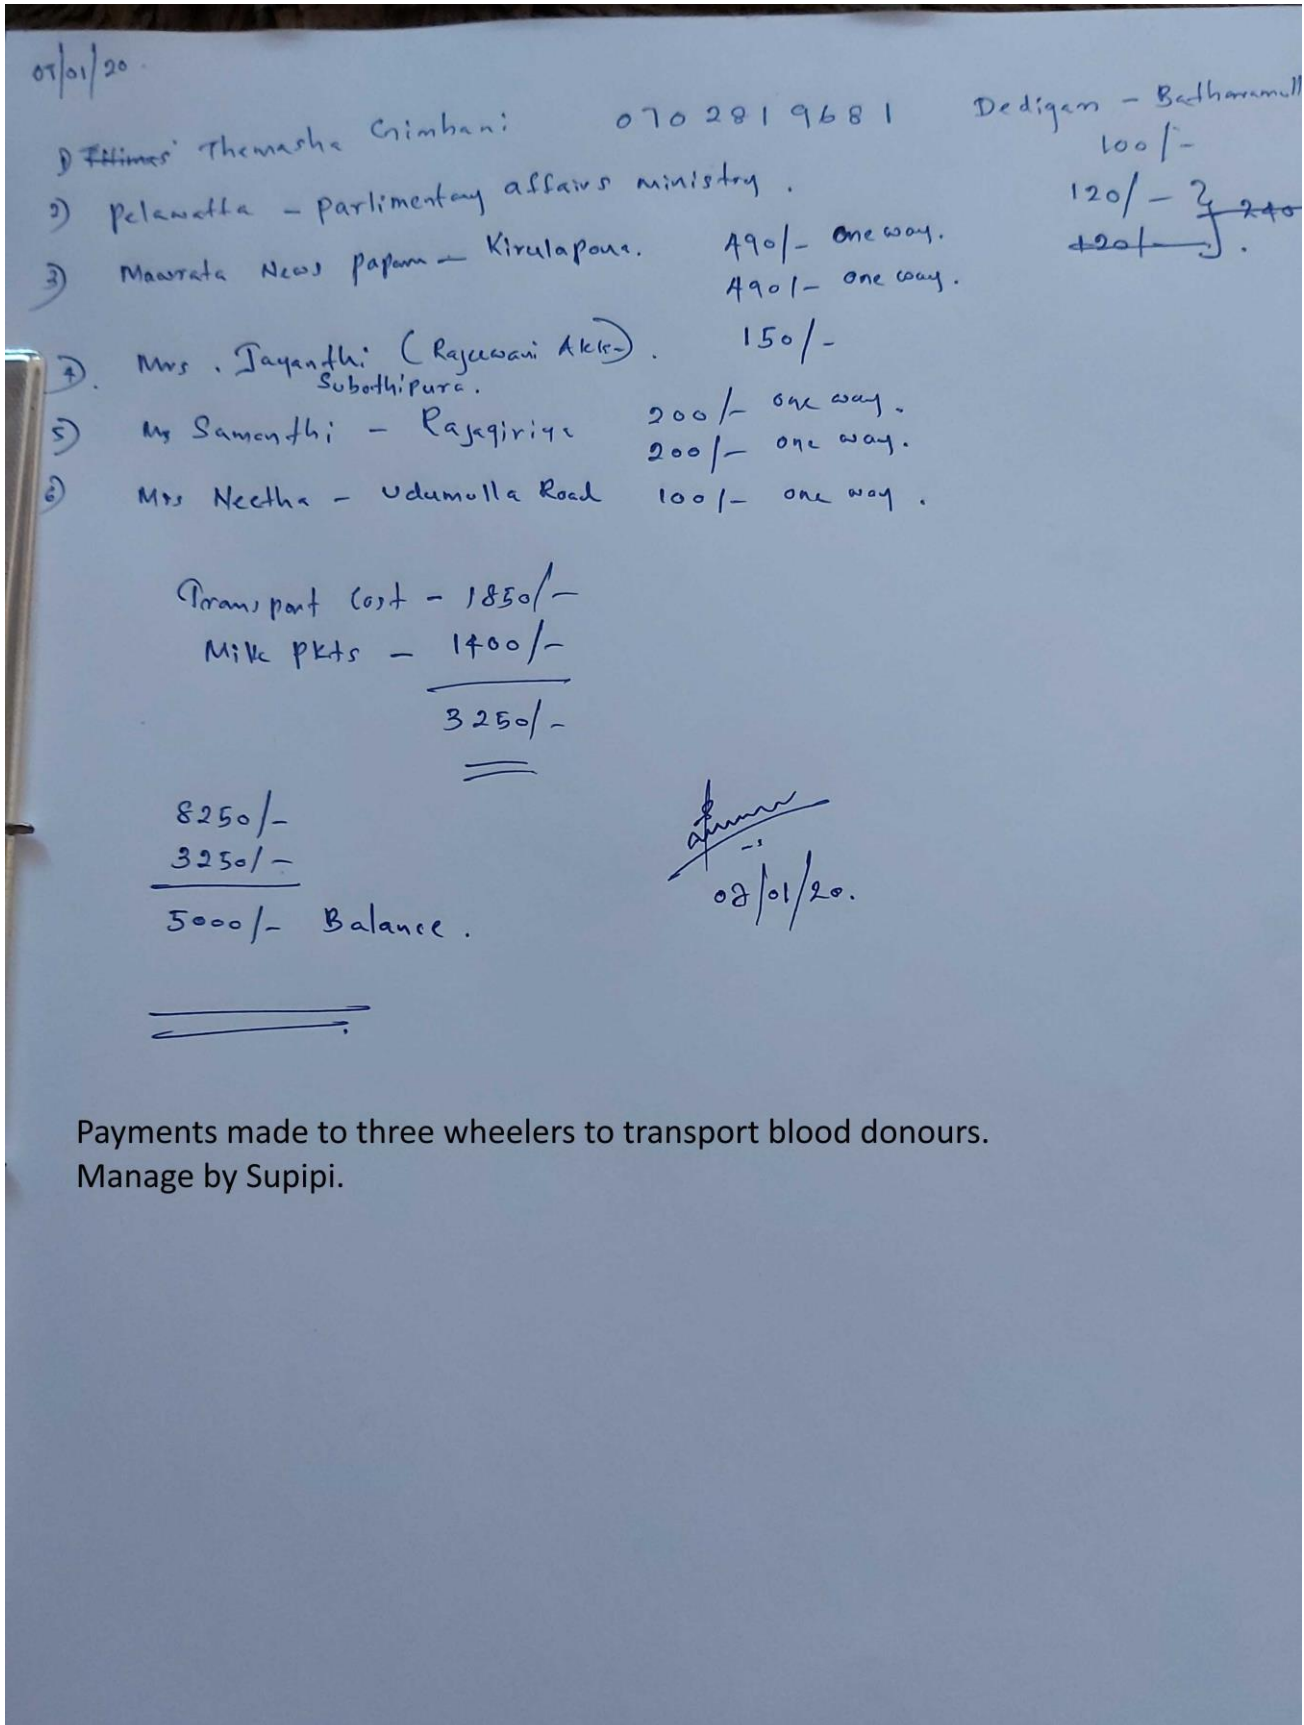 07/01/20.
1) Themasha Gimhani 0702819681 Dedigam - Batharamull
100/-
2) Pelawatta - parlimentary affairs ministry. 120/- 240
120/-
3) Mawrata News papam - Kirulapona. 490/- One way.
490/- one way.
4). Mrs. Jayanthi (Rajeewani Akka). 150/-
Subothipura.
5) Ms Samanthi - Rajagiriya 200/- one way.
200/- one way.
6) Mrs Neetha - Udumulla Road 100/- one way.
Transport Cost - 1850/-
Milk Pkts - 1400/-
3250/-
8250/-
3250/-
5000/- Balance.
07/01/20.
Payments made to three wheelers to transport blood donours.
Manage by Supipi.